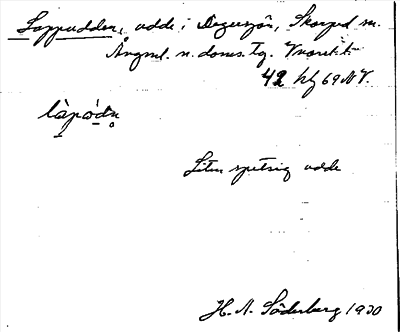 Lappudden, udde i Degersjön, Skorped sn.
Ångml. n. doms. tg.
42 hfg 69 NV.
làpó̀dn
Liten spetsig udde
H. A. Söderberg 1920